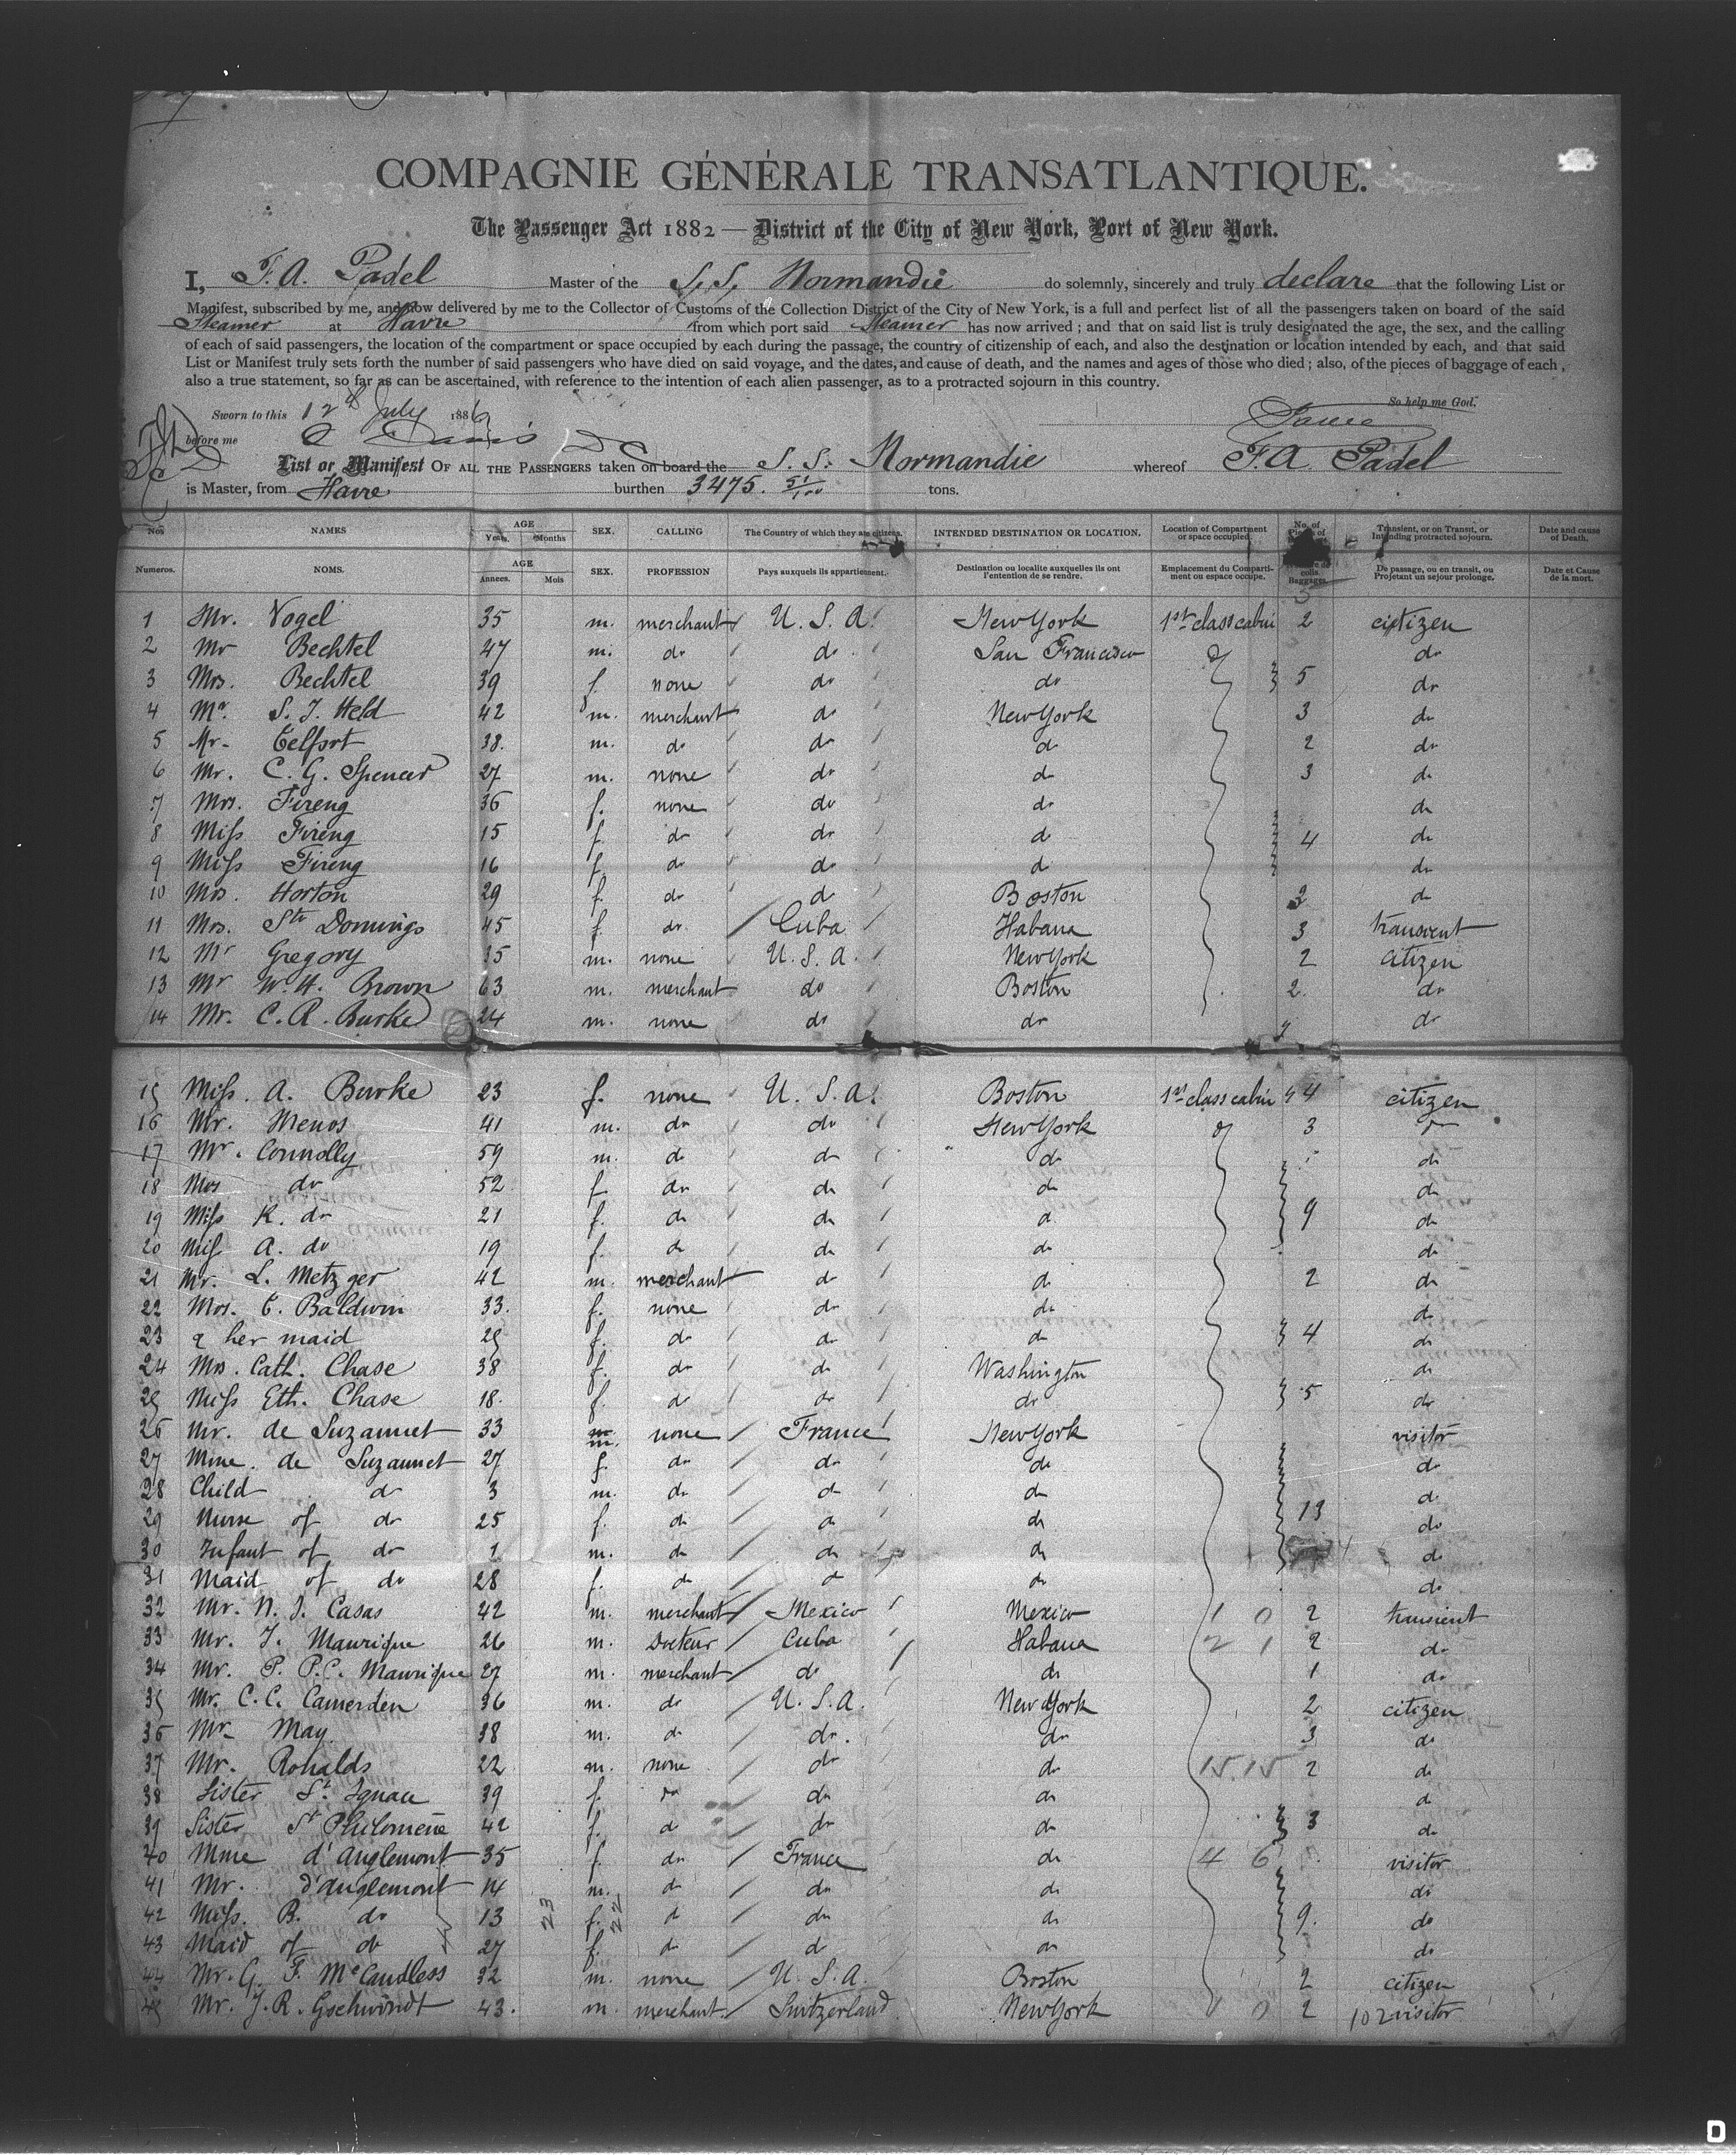 COMPAGNIE GÉNÉRALE TRANSATLANTIQUE.
The Passenger Act 1882 — District of the City of New York, Port of New York.
I, F. A. Padel Master of the S. S. Normandie do solemnly, sincerely and truly declare that the following List or
Manifest, subscribed by me, and now delivered by me to the Collector of Customs of the Collection District of the City of New York, is a full and perfect list of all the passengers taken on board of the said
Steamer at Havre from which port said Steamer has now arrived; and that on said list is truly designated the age, the sex, and the calling
of each of said passengers, the location of the compartment or space occupied by each during the passage, the country of citizenship of each, and also the destination or location intended by each, and that said
List or Manifest truly sets forth the number of said passengers who have died on said voyage, and the dates, and cause of death, and the names and ages of those who died; also, of the pieces of baggage of each,
also a true statement, so far as can be ascertained, with reference to the intention of each alien passenger, as to a protracted sojourn in this country.
So help me God.
Sworn to this 12th July 1886
before me
List or Manifest OF ALL THE PASSENGERS taken on board the S. S. Normandie whereof F. A. Padel
is Master, from Havre burthen 3475. 51/100 tons.
Nos NAMES AGE Years. Months SEX. CALLING The Country of which they are citizens. INTENDED DESTINATION OR LOCATION. Location of Compartment or space occupied. No. of Transient, or on Transit, or Intending protracted sojourn. Date and cause of Death.
Numeros. NOMS. AGE Annees. Mois SEX. PROFESSION Pays auxquels ils appartiennent. Destination ou localite auxquelles ils ont l'entention de se rendre. Emplacement du Compartiment ou espace occupe. colis. Baggages. De passage, ou en transit, ou Projetant un sejour prolonge. Date et Cause de la mort.
1 Mr. Vogel 35 m. merchant U. S. A. New York 1st class cabin 2 citizen
2 Mr Bechtel 47 m. do do San Francisco do
3 Mrs. Bechtel 39 f. none do do 5 do
4 Mr. S. J. Held 42 m. merchant do New York 3 do
5 Mr. Telfort 38. m. do do do 2 do
6 Mr. C. G. Spencer 27 m. none do do 3 do
7 Mrs. Fireng 36 f. none do do do
8 Miss Fireng 15 f. do do do 4 do
9 Miss Fireng 16 f. do do do do
10 Mrs. Horton 29 f. do do Boston 2 do
11 Mrs. Sto Domingo 45 f. do Cuba Habana 3 transient
12 Mr Gregory 35 m. none U. S. A. New York 2 citizen
13 Mr W. H. Brown 63 m. merchant do Boston 2. do
14 Mr. C. R. Burke 24 m. none do do do
15 Miss. A. Burke 23 f. none U. S. A. Boston 1st class cabin 4 citizen
16 Mr. Menos 41 m. do do New York 3 do
17 Mr. Connolly 59 m. do do do do
18 Mrs do 52 f. do do do do
19 Miss K. do 21 f. do do do 9 do
20 Miss A. do 19 f. do do do do
21 Mr. L. Metzger 42 m. merchant do do 2 do
22 Mrs. C. Baldwin 33. f. none do do do
23 & her maid 25 f. do do do 4 do
24 Mrs. Cath. Chase 38 f. do do Washington do
25 Miss Eth. Chase 18. f. do do do 5 do
26 Mr. de Suzannet 33 m. none France New York visitor
27 Mme. de Suzannet 27 f. do do do do
28 Child do 3 m. do do do do
29 Nurse of do 25 f. do do do 13 do
30 Infant of do 1 m. do do do do
31 Maid of do 28 f. do do do do
32 Mr. N. J. Casas 42 m. merchant Mexico Mexico 1 0 2 transient
33 Mr. J. Maurique 26 m. Docteur Cuba Habana 2 1 2 do
34 Mr. P. P. C. Maurique 27 m. merchant do do 1 do
35 Mr. C. C. Camerden 36 m. do U. S. A. New York 2 citizen
36 Mr. May 38 m. do do. do 3 do
37 Mr. Ronalds 22 m. none do do 15. 15 2 do
38 Sister St. Ignace 39 f. do do do do
39 Sister St Philomène 42 f. do do do 3 do
40 Mme d'Anglemont 35 f. do France do 4 6 visitor
41 Mr. d'Anglemont 14 m. do do do do
42 Miss. B. do 13 23 f. 22 do do do 9. do
43 Maid of do 27 f. do do do do
44 Mr. G. F. McCandless 32 m. none U. S. A. Boston 2 citizen
45 Mr. J. R. Gschwindt 43. m. merchant Switzerland New York 1 0 2 102 visitor
D